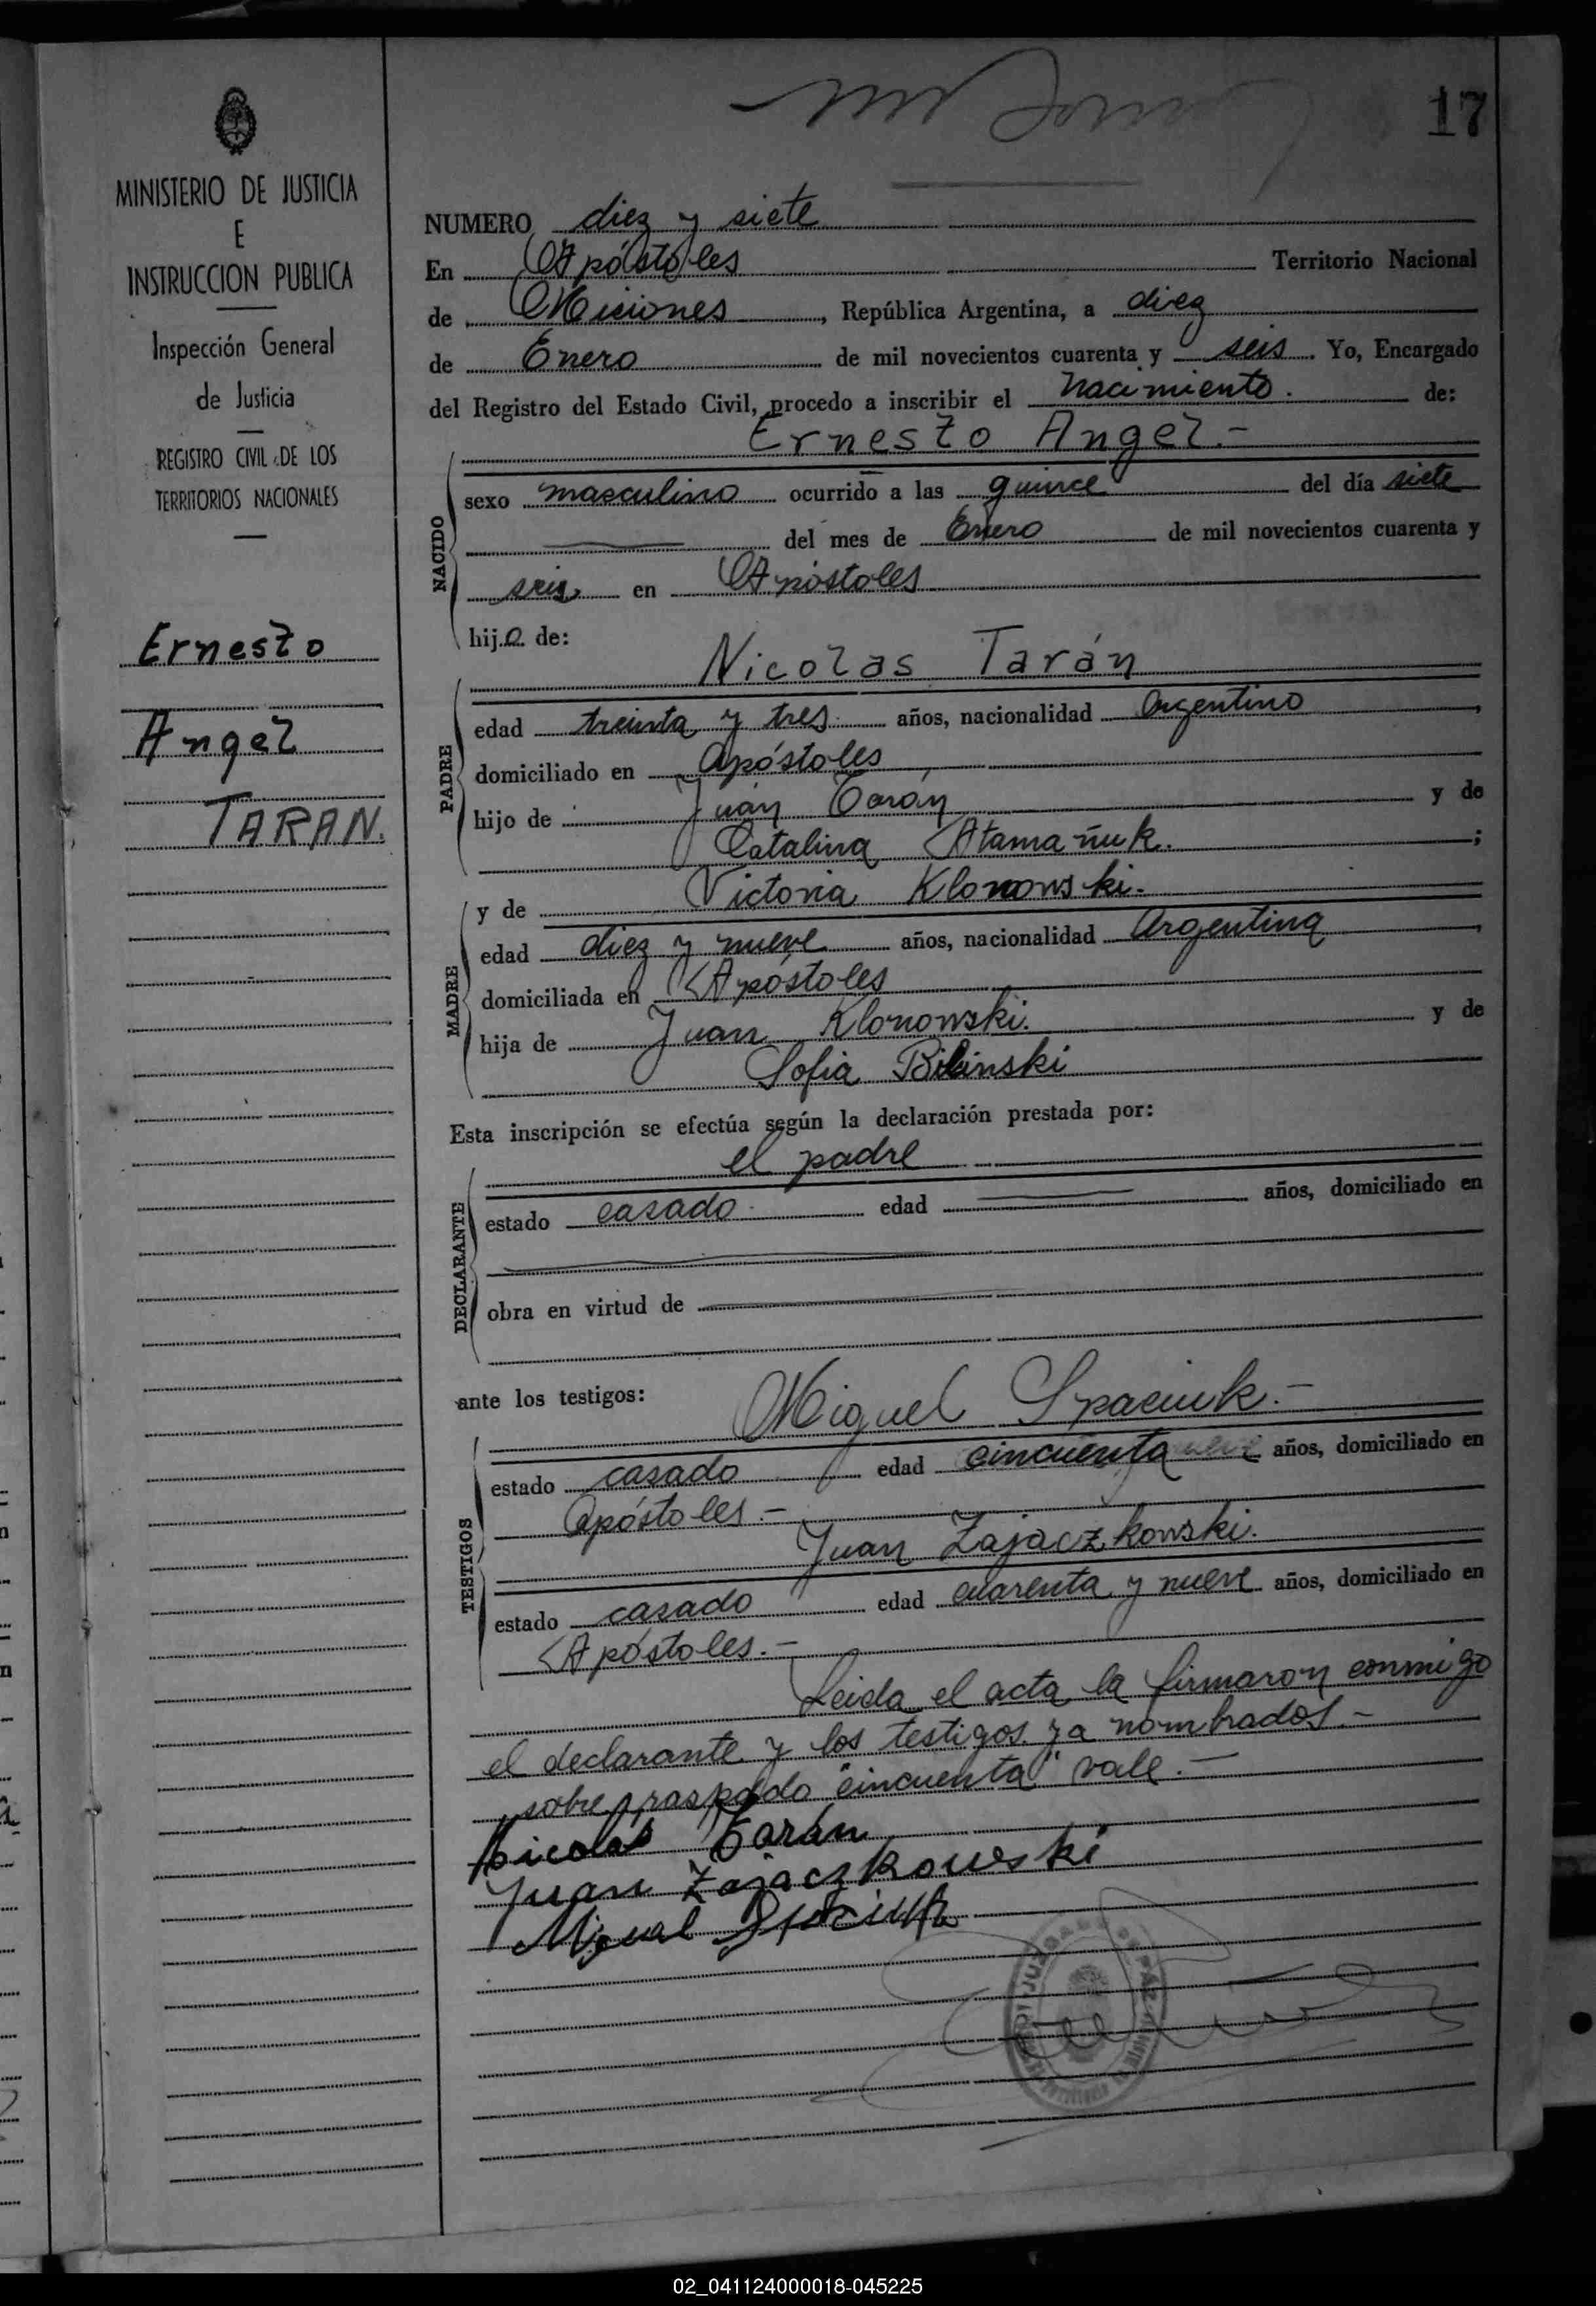 17
MINISTERIO DE JUSTICIA
E
INSTRUCCION PUBLICA
Inspección General
de Justicia
REGISTRO CIVIL DE LOS
TERRITORIOS NACIONALES
Ernesto
Angel
TARAN.
NUMERO diez y siete
En Apóstoles Territorio Nacional
de Misiones, República Argentina, a diez
de Enero de mil novecientos cuarenta y seis. Yo, Encargado
del Registro del Estado Civil, procedo a inscribir el nacimiento. de:
Ernesto Angel.-
NACIDO
sexo masculino ocurrido a las quince del día siete
del mes de Enero de mil novecientos cuarenta y
seis en Apóstoles
hijo de:
Nicolas Tarán
PADRE
edad treinta y tres años, nacionalidad Argentino,
domiciliado en Apóstoles
hijo de Juan Tarán y de
Catalina Atamañuk. ;
y de Victoria Klonowski.-
MADRE
edad diez y nueve años, nacionalidad Argentina,
domiciliada en Apóstoles
hija de Juan Klonowski. y de
Sofia Bilinski
Esta inscripción se efectúa según la declaración prestada por:
el padre
DECLARANTE
estado casado edad años, domiciliado en
obra en virtud de
ante los testigos: Miguel Spaciuk.-
TESTIGOS
estado casado edad cincuenta años, domiciliado en
Apóstoles.-
Juan Zajaczkowski.
estado casado edad cuarenta y nueve años, domiciliado en
Apóstoles.-
Leida el acta la firmaron conmigo
el declarante y los testigos ya nombrados.-
sobre raspado "cincuenta" vale.-
Nicolas Tarán
Juan Zajaczkowski
Miguel Spaciuk
02_041124000018-045225